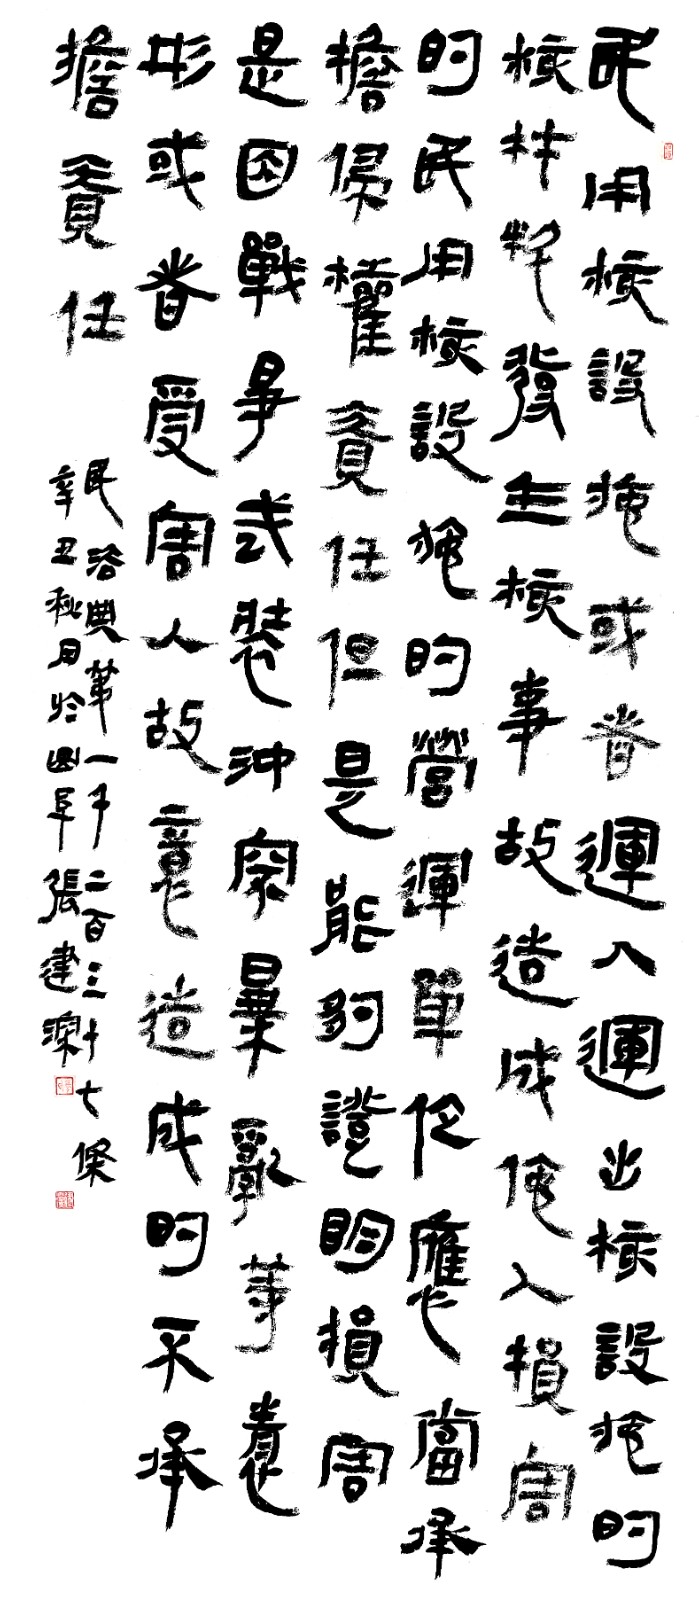 民用核設施或者運入運出核設施的
核材料發生核事故造成他人損害
的民用核設施的營運單位應當承
擔侵權責任但是能夠證明損害
是因戰爭武裝沖突暴亂等情
形或者受害人故意造成的不承
擔責任
民法典第一千二百三十七條
辛丑秋月於曲阜張建